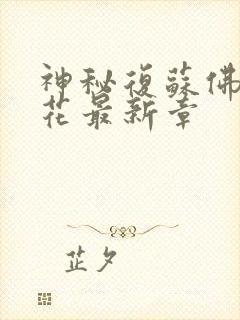 神秘復蘇佛
花最新章
芷夕